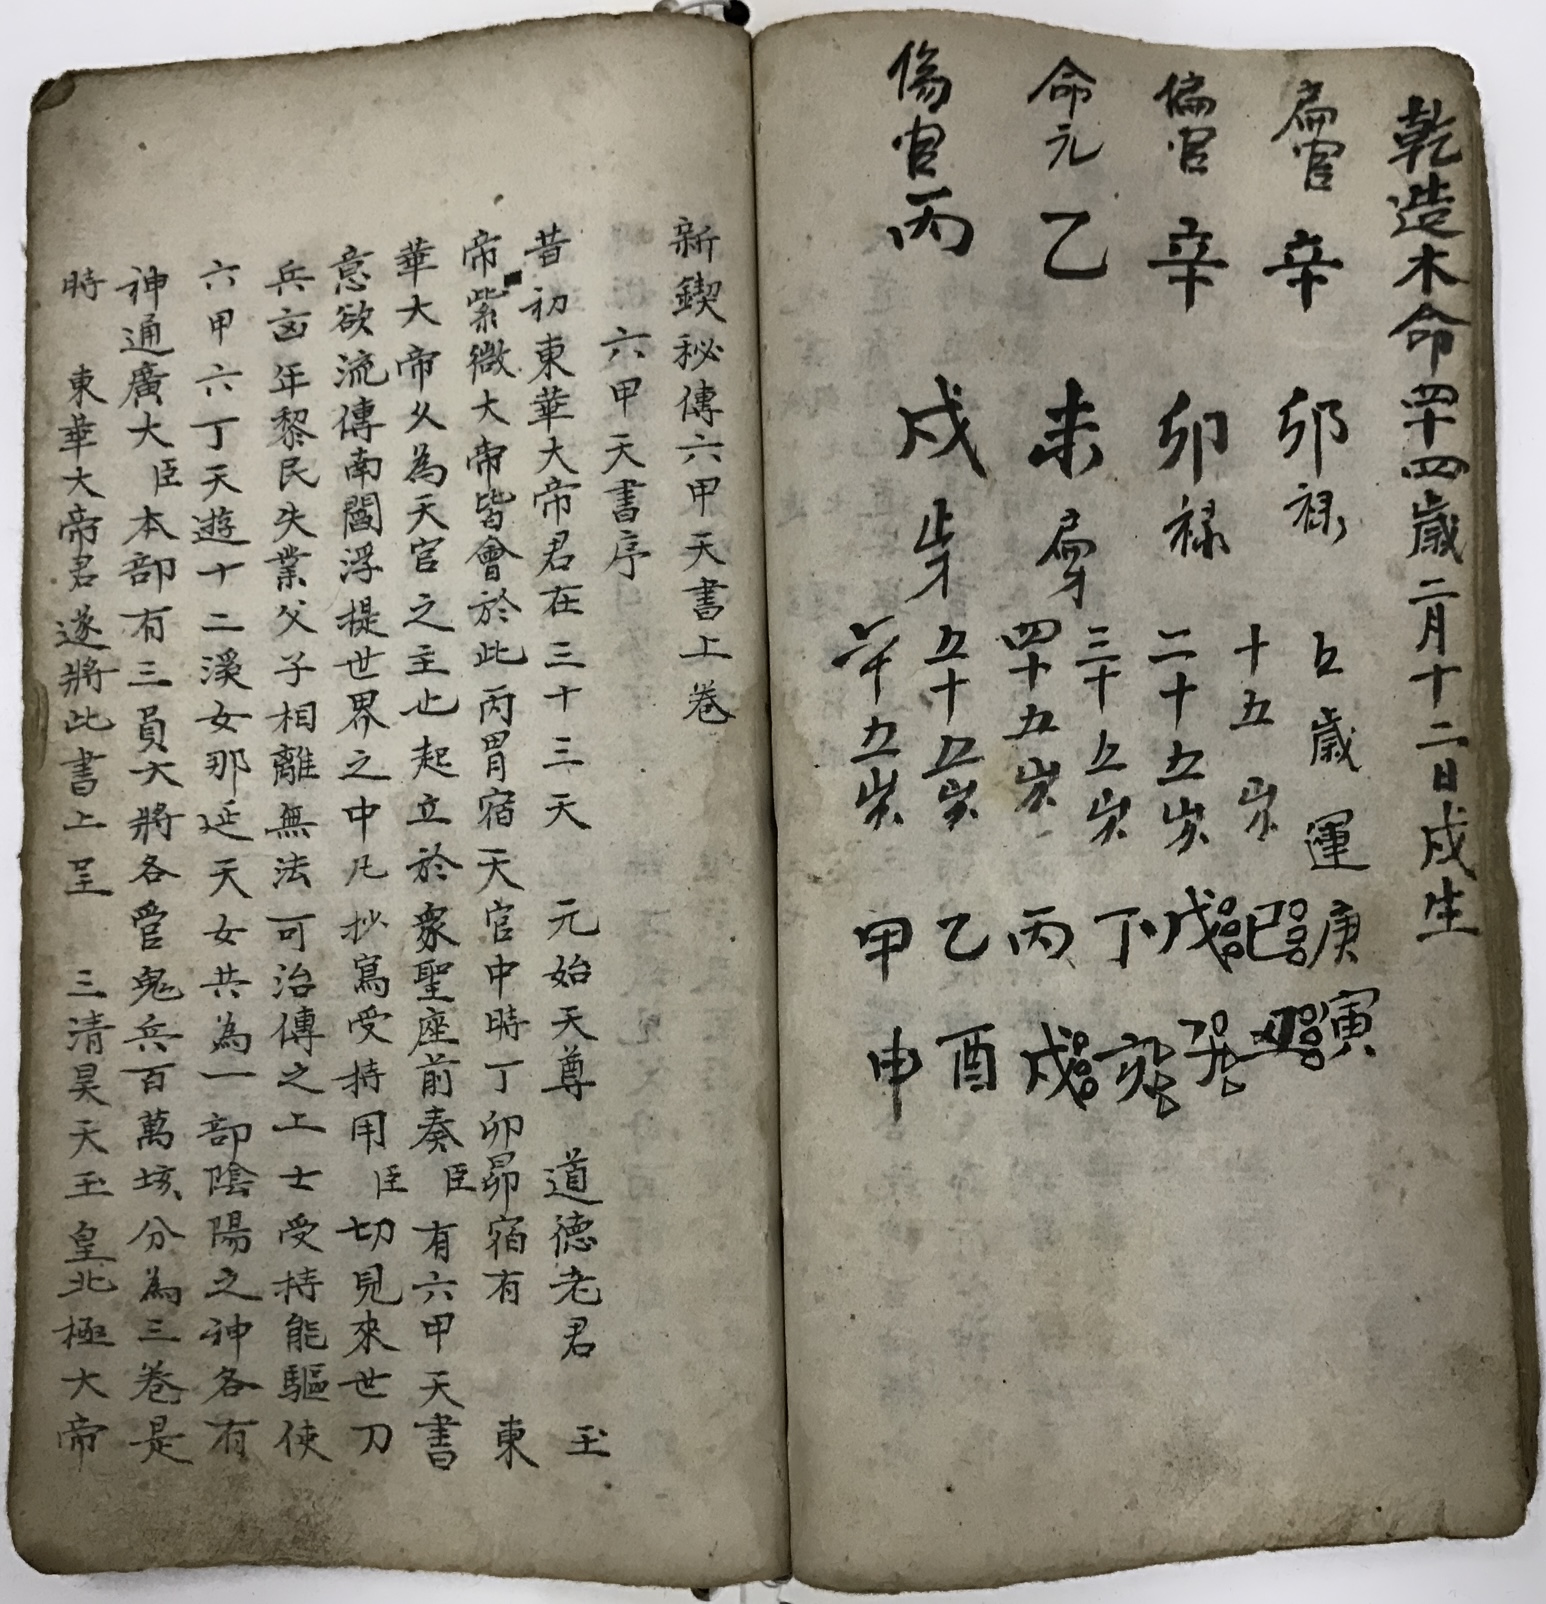 乾造木命四十四歲二月十二日戌生
扁官 辛 卯 禄
偏官 辛 卯 禄
命元 乙 未 扁才
傷官 丙 戌 才
五歲運 庚寅
十五岁 己丑
二十五岁 戊子
三十五岁 丁亥
四十五岁 丙戌
五十五岁 乙酉
六十五岁 甲申
新鍥秘傳六甲天書上卷
六甲天書序
昔初東華大帝君在三十三天 元始天尊 道德老君 玉
帝紫微大帝皆會於此丙胃宿天官中時丁卯昴宿有 東
華大帝久為天官之主也起立於衆聖座前奏臣有六甲天書
意欲流傳南閻浮提世界之中凡抄寫受持用臣切見來世刀
兵凶年黎民失業父子相離無法可治傳之上士受持能驅使
六甲六丁天遊十二溪女那延天女共為一部陰陽之神各有
神通廣大臣本部有三員大將各管鬼兵百萬垓分為三卷是
時 東華大帝君遂將此書上呈 三清昊天玉皇北極大帝